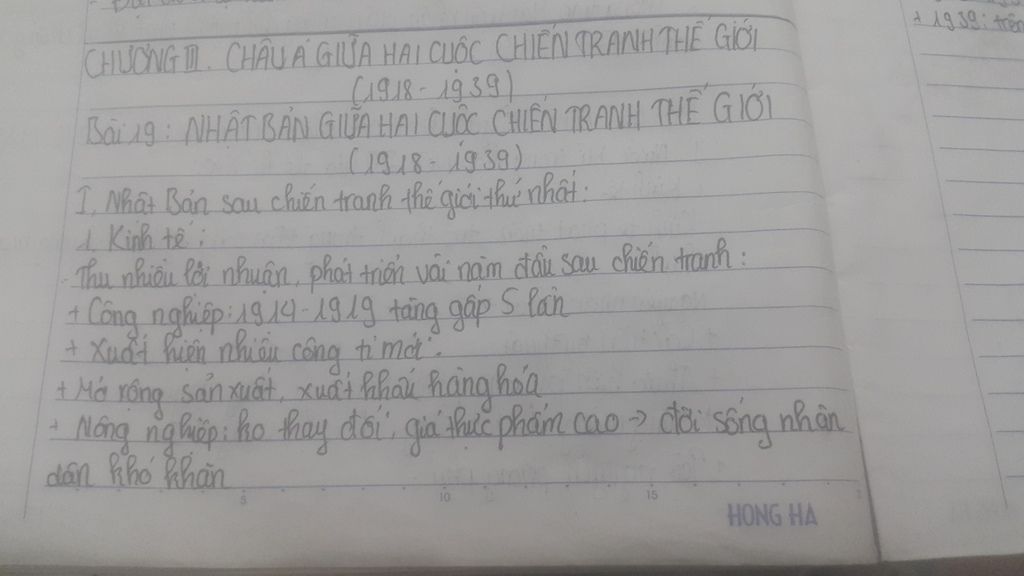 CHƯƠNG III. CHÂU Á GIỮA HAI CUỘC CHIẾN TRANH THẾ GIỚI
(1918-1939)
Bài 19: NHẬT BẢN GIỮA HAI CUỘC CHIẾN TRANH THẾ GIỚI
(1918-1939)
I, Nhật Bản sau chiến tranh thế giới thứ nhất:
1. Kinh tế:
- Thu nhiều lợi nhuận, phát triển vài năm đầu sau chiến tranh:
+ Công nghiệp: 1914-1919 tăng gấp 5 lần
+ Xuất hiện nhiều công ti mới.
+ Mở rộng sản xuất, xuất khẩu hàng hóa
+ Nông nghiệp: ko thay đổi, giá thực phẩm cao → đời sống nhân
dân khó khăn
5 10 15 2
HONG HA
+ 1939: trên